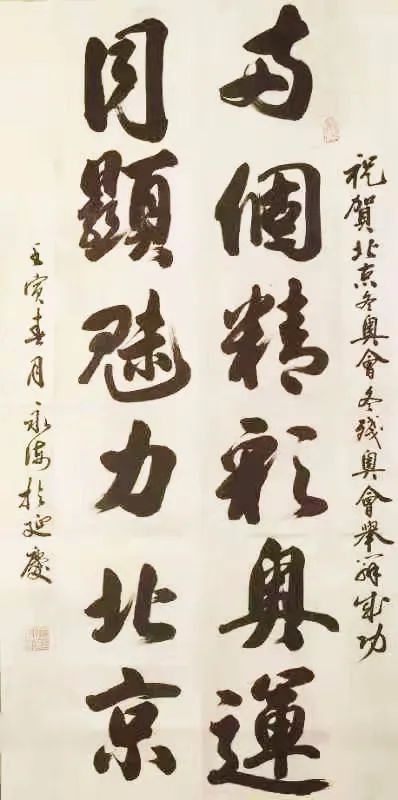 祝賀北京冬奥會冬残奥會舉辦成功
两個精彩奥運
同顯魅力北京
壬寅春月永海於延慶